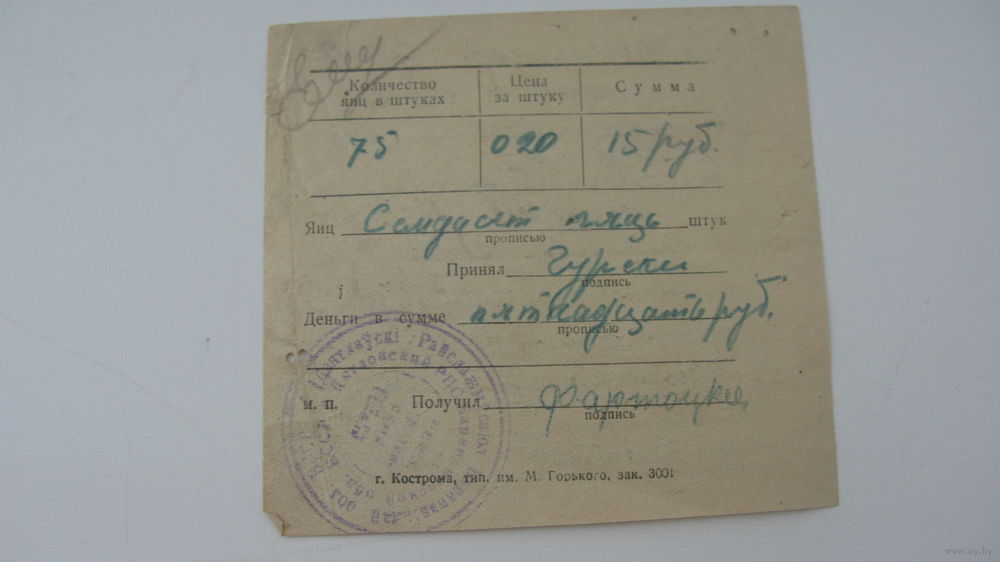 Количество яиц в штуках
Цена за штуку
Сумма
75
0 20
15 руб.
Яиц Семдасят пяць штук
прописью
Принял Гурски
подпись
Деньги в сумме пятнадцать руб.
прописью
м. п. Получил
подпись
г. Кострома, тип. им. М. Горького, зак. 3001
www.ay.by